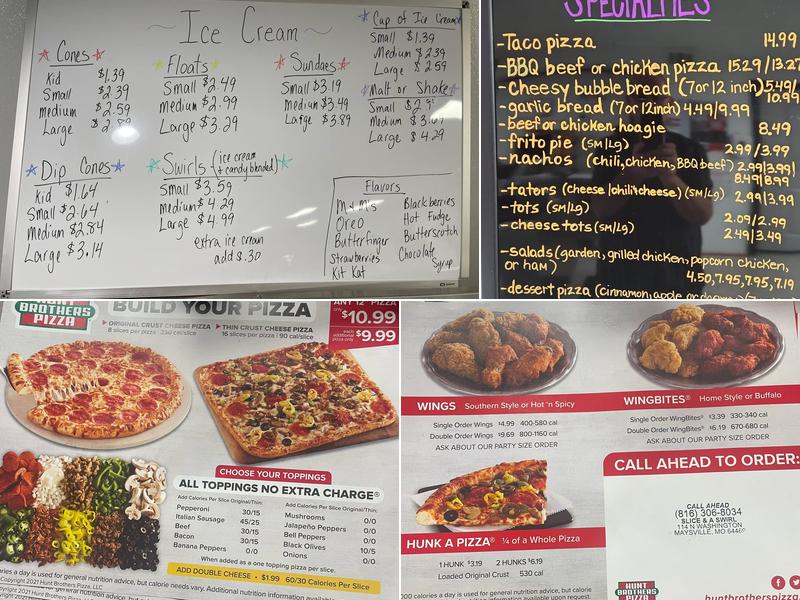 Ice Cream
Cones
Kid $1.39
Small $2.39
Medium $2.59
Large
Floats
Small $2.49
Medium $2.99
Large $3.29
Sundaes
Small $3.19
Medium $3.49
Large $3.89
Cup of Ice Cream
Small $1.39
Medium $2.39
Large $2.59
Malt or Shake
Small
Medium
Large $4.29
Dip Cones
Kid $1.64
Small $2.64
Medium $2.84
Large $3.14
Swirls (ice cream
& candy blended)
Small $3.59
Medium $4.29
Large $4.99
extra ice cream
add $.30
Flavors
M&M's
Oreo
Butterfinger
Strawberries
Kit Kat
Blackberries
Hot Fudge
Butterscotch
Chocolate
Syrup
SPECIALTIES
-Taco pizza 14.99
-BBQ beef or chicken pizza 15.29/13.27
-Cheesy bubble bread (7 or 12 inch) 5.49/
10.99
-garlic bread (7 or 12 inch) 4.49/9.99
-beef or chicken hoagie 8.49
-frito pie (SM/Lg) 2.99/3.99
-nachos (chili, chicken, BBQ beef) 2.99/3.99/
8.49/8.99
-tators (cheese/chili&cheese) (SM/Lg) 2.99/3.99
-tots (SM/Lg) 2.09/2.99
-cheese tots (SM/Lg) 2.49/3.49
-salads (garden, grilled chicken, popcorn chicken,
or ham) 4.50, 7.95, 7.95, 7.19
-dessert pizza (cinnamon, apple or
HUNT
BROTHERS
PIZZA
BUILD YOUR PIZZA
ORIGINAL CRUST CHEESE PIZZA
8 slices per pizza | 230 cal/slice
THIN CRUST CHEESE PIZZA
16 slices per pizza | 90 cal/slice
ANY 12" PIZZA
only $10.99
each additional pizza only $9.99
CHOOSE YOUR TOPPINGS
ALL TOPPINGS NO EXTRA CHARGE®
Add Calories Per Slice Original/Thin:
Pepperoni 30/15
Italian Sausage 45/25
Beef 30/15
Bacon 30/15
Banana Peppers 0/0
Add Calories Per Slice Original/Thin:
Mushrooms 0/0
Jalapeño Peppers 0/0
Bell Peppers 0/0
Black Olives 10/5
Onions 0/0
When added as a one topping pizza per slice.
ADD DOUBLE CHEESE • $1.99 60/30 Calories Per Slice
calories a day is used for general nutrition advice, but calorie needs vary. Additional nutrition information available
Copyright 2021 Hunt Brothers Pizza, LLC
WINGS Southern Style or Hot 'n Spicy
Single Order Wings $4.99 400-580 cal
Double Order Wings $9.69 800-1160 cal
ASK ABOUT OUR PARTY SIZE ORDER
WINGBITES® Home Style or Buffalo
Single Order WingBites® $3.39 330-340 cal
Double Order WingBites® $6.19 670-680 cal
ASK ABOUT OUR PARTY SIZE ORDER
HUNK A PIZZA® ¼ of a Whole Pizza
1 HUNK $3.19 2 HUNKS $6.19
Loaded Original Crust 530 cal
CALL AHEAD TO ORDER:
CALL AHEAD
(816) 306-8034
SLICE & A SWIRL
114 N WASHINGTON
MAYSVILLE, MO 6446
HUNT
BROTHERS
PIZZA
huntbrotherspizza.